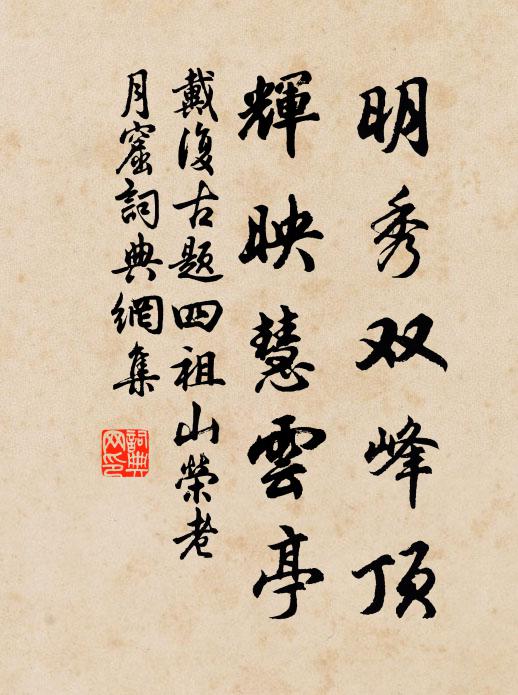 明秀双峰顶
輝映慧雲亭
戴復古题四祖山榮老
月窟詞典網集
詞典网印